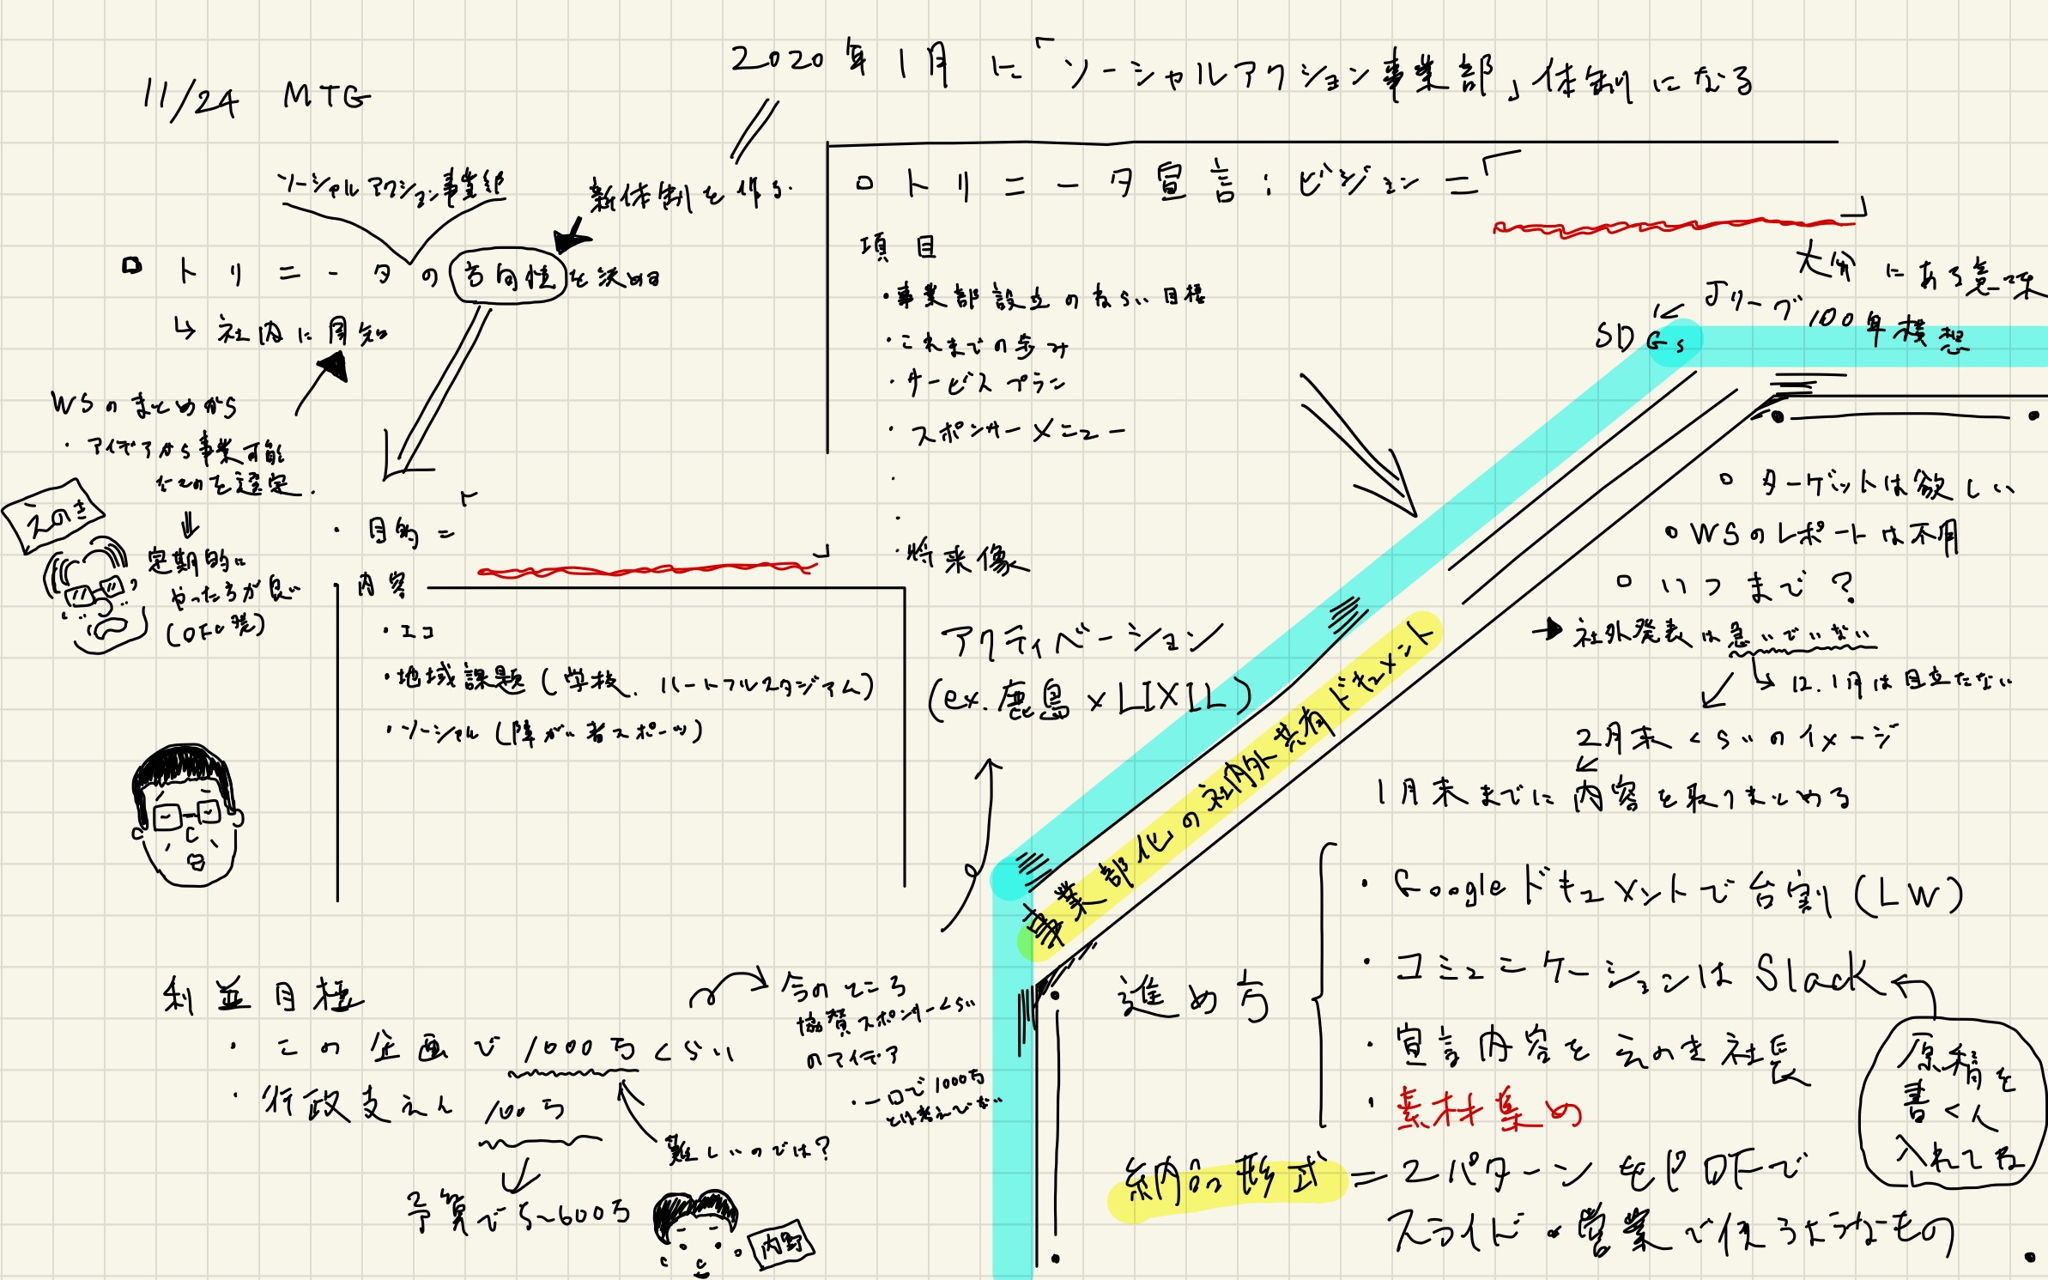 11/24 MTG
2020年1月に「ソーシャルアクション事業部」体制になる
ソーシャルアクション事業部
新体制を作る.
□ トリニータの方向性を決める
↳ 社内に周知
WSのまとめから
・アイデアから事業可能
なものを選定.
えのき
定期的に
やった方が良い
(OFC発)
・目的=「 」
内容
・エコ
・地域課題(学校、ハートフルスタジアム)
・ソーシャル(障がい者スポーツ)
利益目標
・この企画で1000万くらい
・行政支えん 100万
難しいのでは?
予算で5〜600万
内野
今のところ
協賛スポンサーくらい
のアイデア
・一口で1000万
とは考えてない
□ トリニータ宣言:ビジョン=「 」
項目
・事業部設立のねらい目標
・これまでの歩み
・サービスプラン
・スポンサーメニュー
・
・
・将来像
アクティベーション
(ex.鹿島×LIXIL)
事業部化の社内外共有ドキュメント
大分にある意味
Jリーグ100年構想
SDGs
○ ターゲットは欲しい
○ WSのレポートは不用
○ いつまで?
→ 社外発表は急いでいない
↳ 12.1月は目立たない
2月末くらいのイメージ
1月末までに内容を取りまとめる
進め方
・Googleドキュメントで台割(LW)
・コミュニケーションはSlack
・宣言内容をえのき社長
・素材集め
原稿を
書く人
入れてる
納品形式=2パターンをPDFで
スライド・営業で使うようなもの